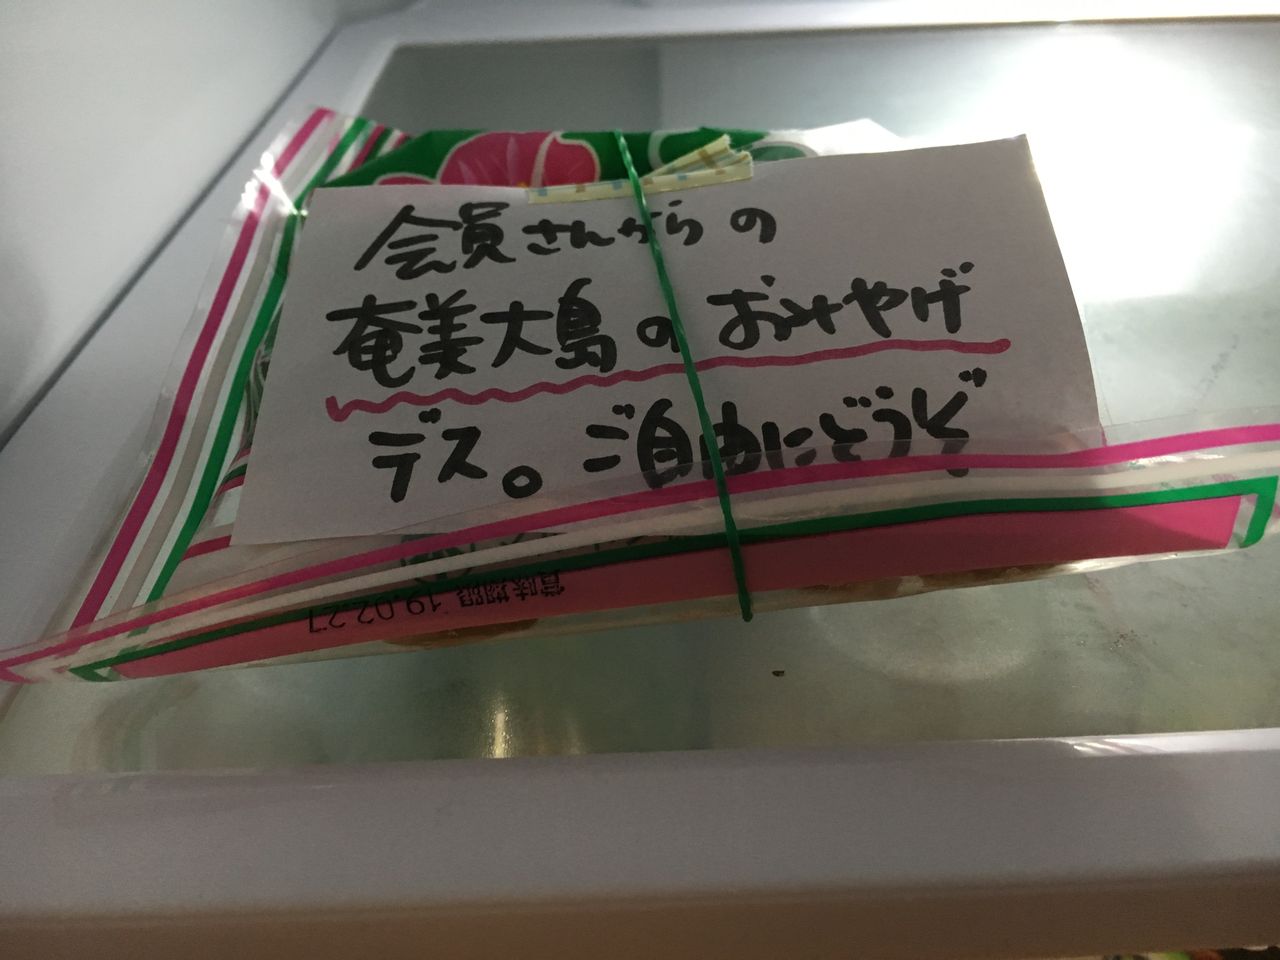 会員さんからの
奄美大島のおみやげ
デス。ご自由にどうぞ
賞味期限 19.02.27